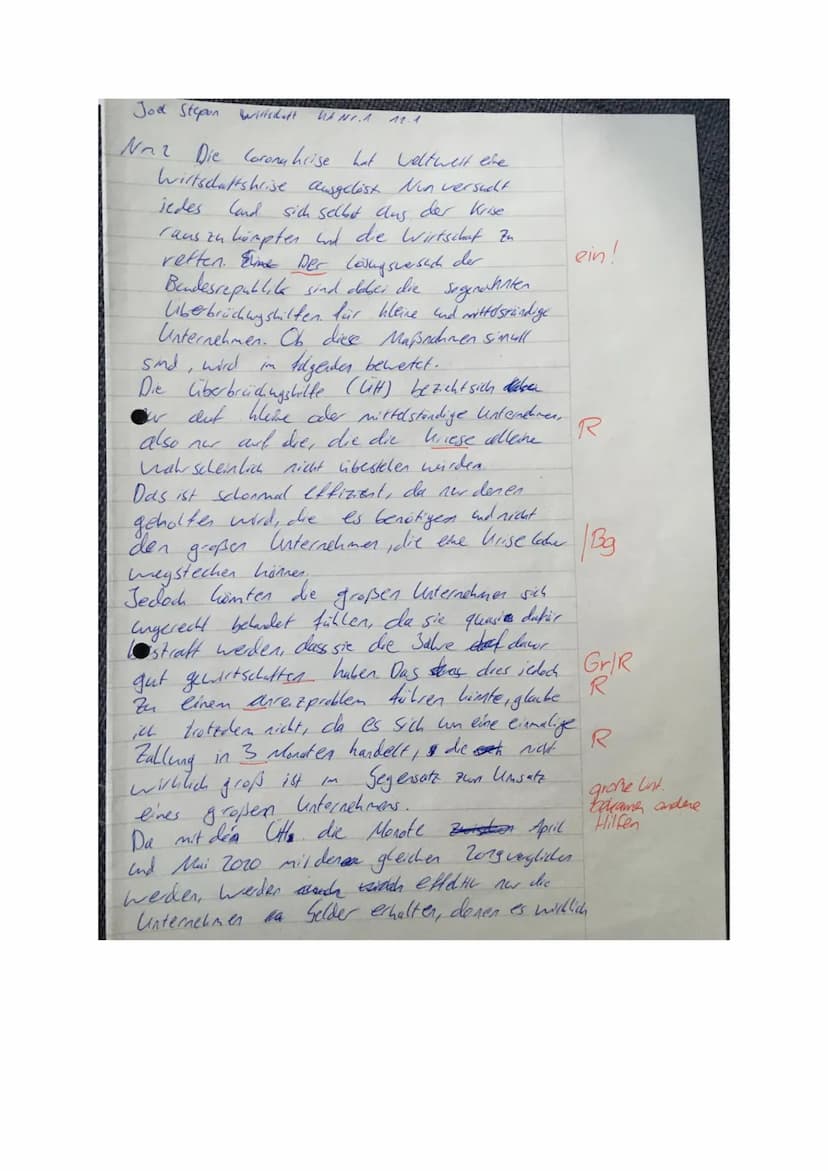 Joel Stepan Wirtschaft KA Nr.1 12.1
Nr. 2 Die Coronakrise hat weltweit eine
Wirtschaftskrise ausgelöst. Nun versucht
jedes Land sich selbst aus der Krise
raus zu kämpfen und die Wirtschaft zu
retten. Der Lösungsversuch der ein!
Bundesrepublik sind dabei die sogenannten
Überbrückungshilfen für kleine und mittelständige
Unternehmen. Ob diese Maßnahmen sinvoll
sind, wird im folgenden bewertet.
Die Überbrückungshilfe (ÜH) bezieht sich
auf kleine oder mittelständige Unternehmen,
also nur auf die, die die Kriese alleine R
wahrscheinlich nicht überstehen würden.
Das ist schonmal effizient, da nur denen
geholfen wird, die es benötigen und nicht
den großen Unternehmen, die eine Krise locker /Bg
wegstecken können.
Jedoch könnten die großen Unternehmen sich
ungerecht behandelt fühlen, da sie quasi dafür
bestraft werden, dass sie die Jahre davor
gut gewirtschaften haben. Das dies jedoch Gr/R
zu einem anreizproblem führen könnte, glaube R
ich trotzdem nicht, da es sich um eine einmalige
Zahlung in 3 Monaten handelt, die nicht R
wirklich groß ist im Gegensatz zum Umsatz
eines großen Unternehmens. große Unt. bekamen andere Hilfen
Da mit den ÜHs die Monate April
und Mai 2020 mit denen gleichen 2019 verglichen
werden, werden effektiv nur die
Unternehmen Gelder erhalten, denen es wirklich